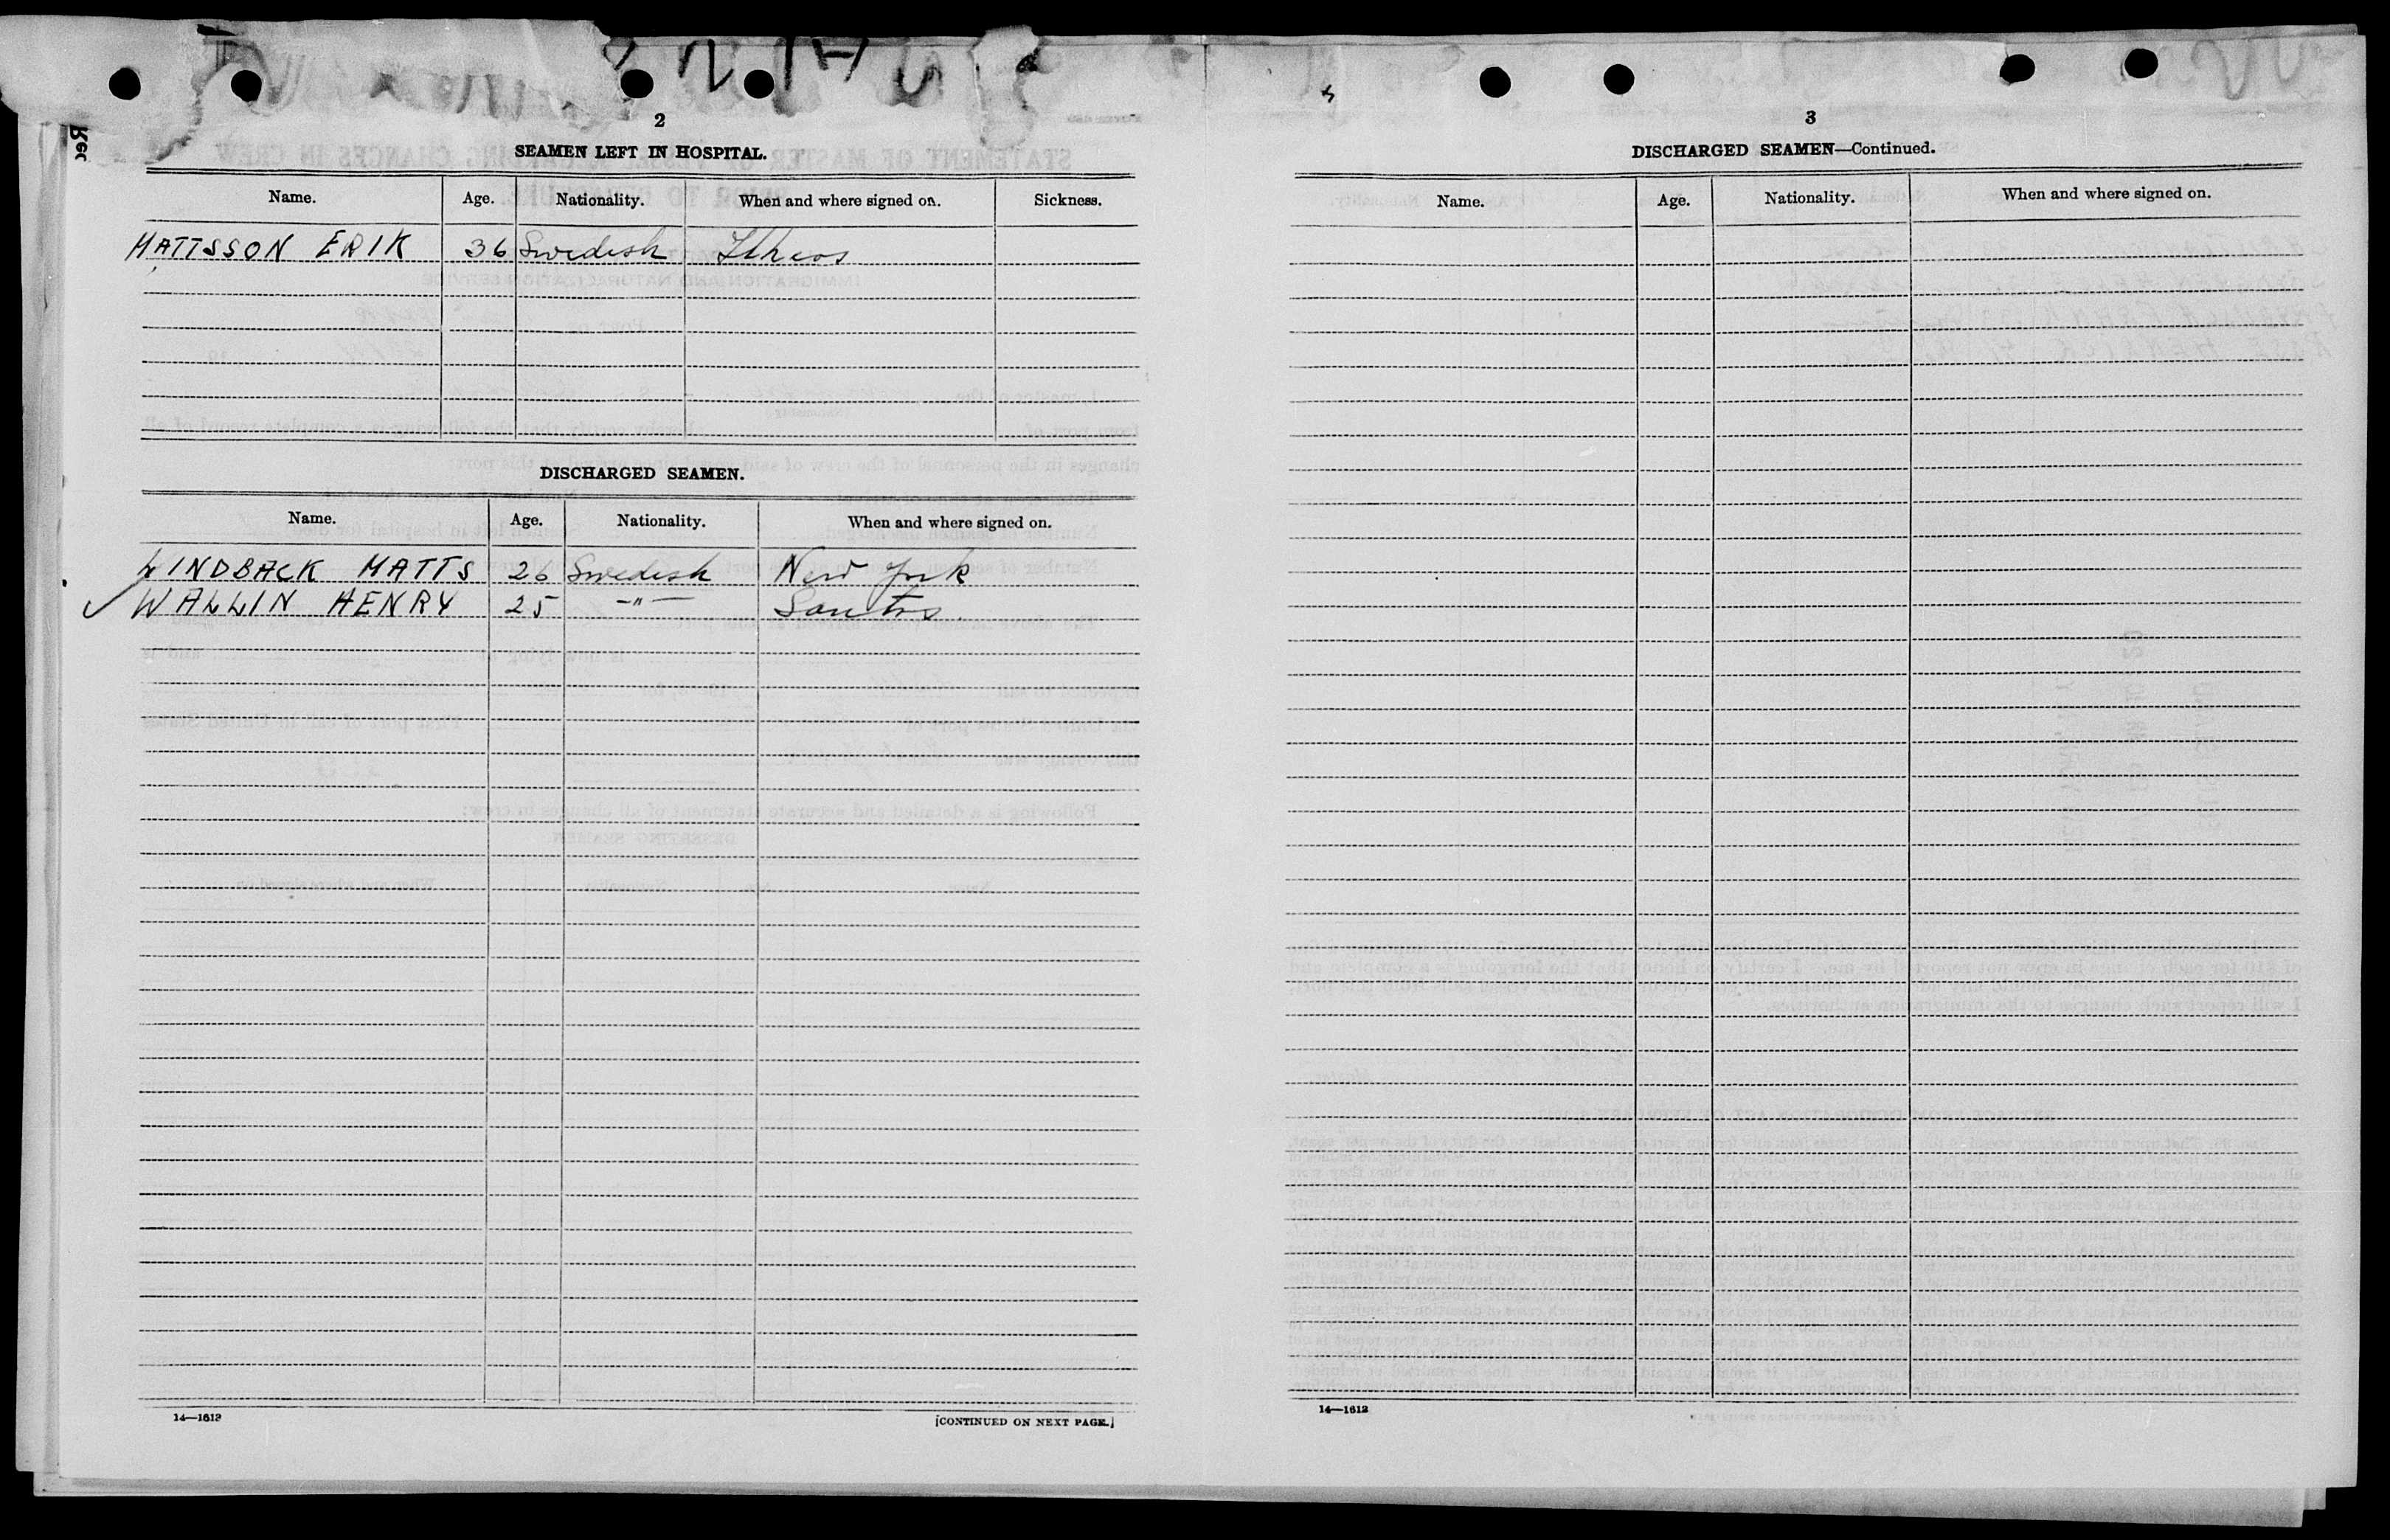 2
SEAMEN LEFT IN HOSPITAL.
Name. Age. Nationality. When and where signed on. Sickness.
MATTSSON ERIK 36 Swedish Ilheos
DISCHARGED SEAMEN.
Name. Age. Nationality. When and where signed on.
LINDBACK MATTS 26 Swedish New York
WALLIN HENRY 25 -"- Santos.
14—1612
[CONTINUED ON NEXT PAGE.]
3
DISCHARGED SEAMEN—Continued.
Name. Age. Nationality. When and where signed on.
14—1612
Rec